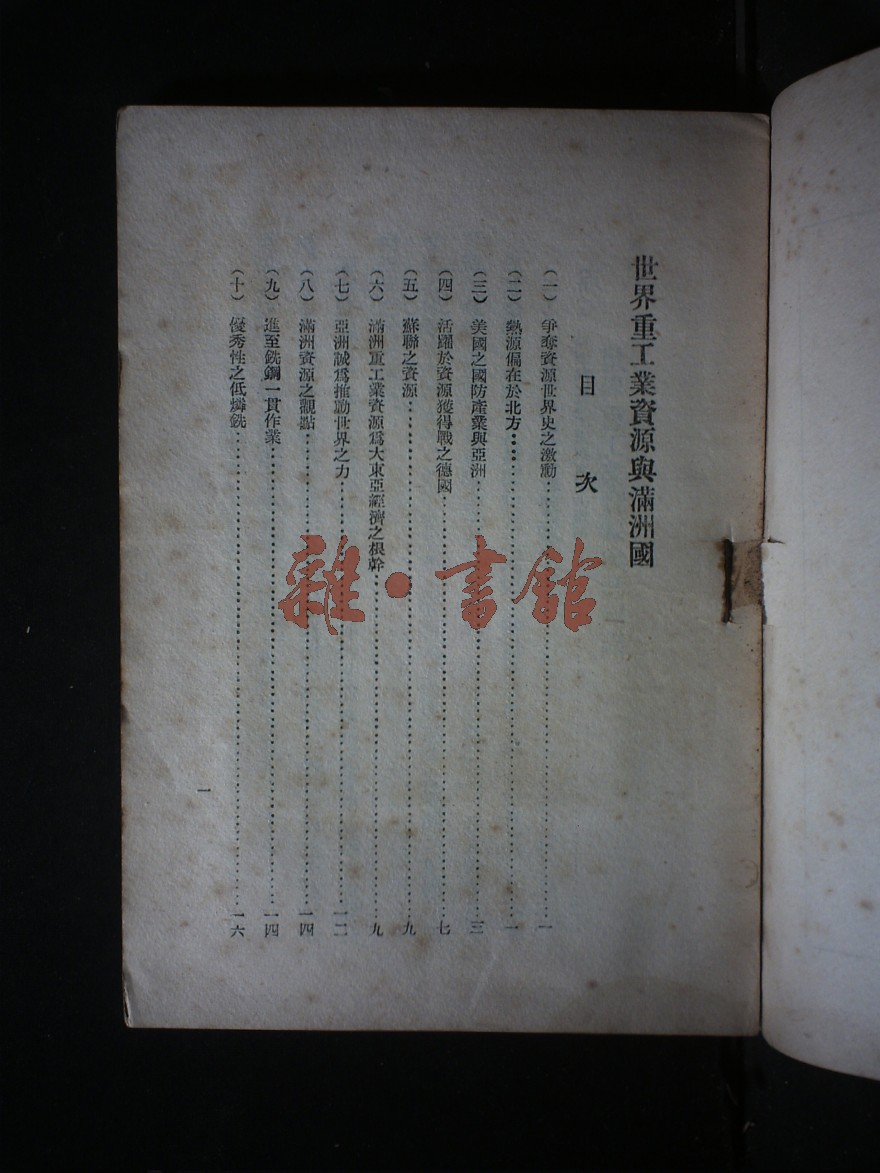 世界重工業資源與滿洲國
目次
(一) 爭奪資源世界史之激動……一
(二) 熱源偏在於北方……一
(三) 美國之國防產業與亞洲……三
(四) 活躍於資源獲得戰之德國……七
(五) 蘇聯之資源……九
(六) 滿洲重工業資源爲大東亞經濟之根幹……九
(七) 亞洲誠爲推動世界之力……一二
(八) 滿洲資源之觀點……一四
(九) 進至銑鋼一貫作業……一四
(十) 優秀性之低燐銑……一六
一
雜·書館